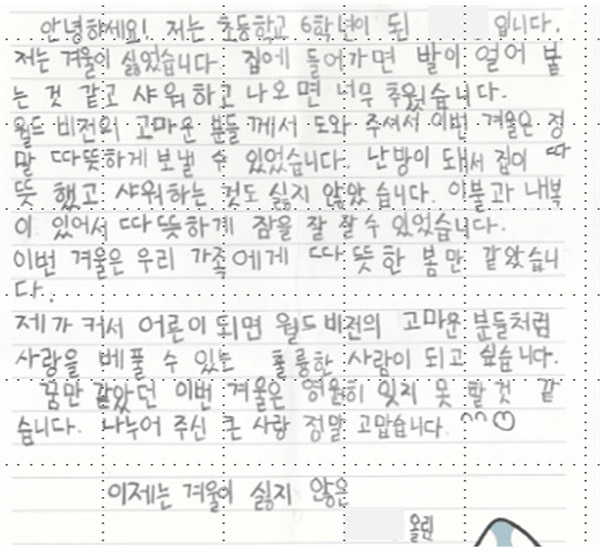 안녕하세요! 저는 초등학교 6학년이 된 입니다.
저는 겨울이 싫었습니다. 집에 들어가면 발이 얼어 붙
는 것 같고 샤워하고 나오면 너무 추웠습니다.
월드비전의 고마운 분들께서 도와 주셔서 이번 겨울은 정
말 따뜻하게 보낼 수 있었습니다. 난방이 돼서 집이 따
뜻 했고 샤워하는 것도 싫지 않았습니다. 이불과 내복
이 있어서 따뜻하게 잠을 잘 잘 수 있었습니다.
이번 겨울은 우리 가족에게 따뜻한 봄만 같았습니
다.
제가 커서 어른이 되면 월드비전의 고마운 분들처럼
사랑을 베풀 수 있는 훌륭한 사람이 되고 싶습니다.
꿈만 같았던 이번 겨울은 영원히 잊지 못 할것 같
습니다. 나누어 주신 큰 사랑 정말 고맙습니다. ^^
이제는 겨울이 싫지 않은
올림